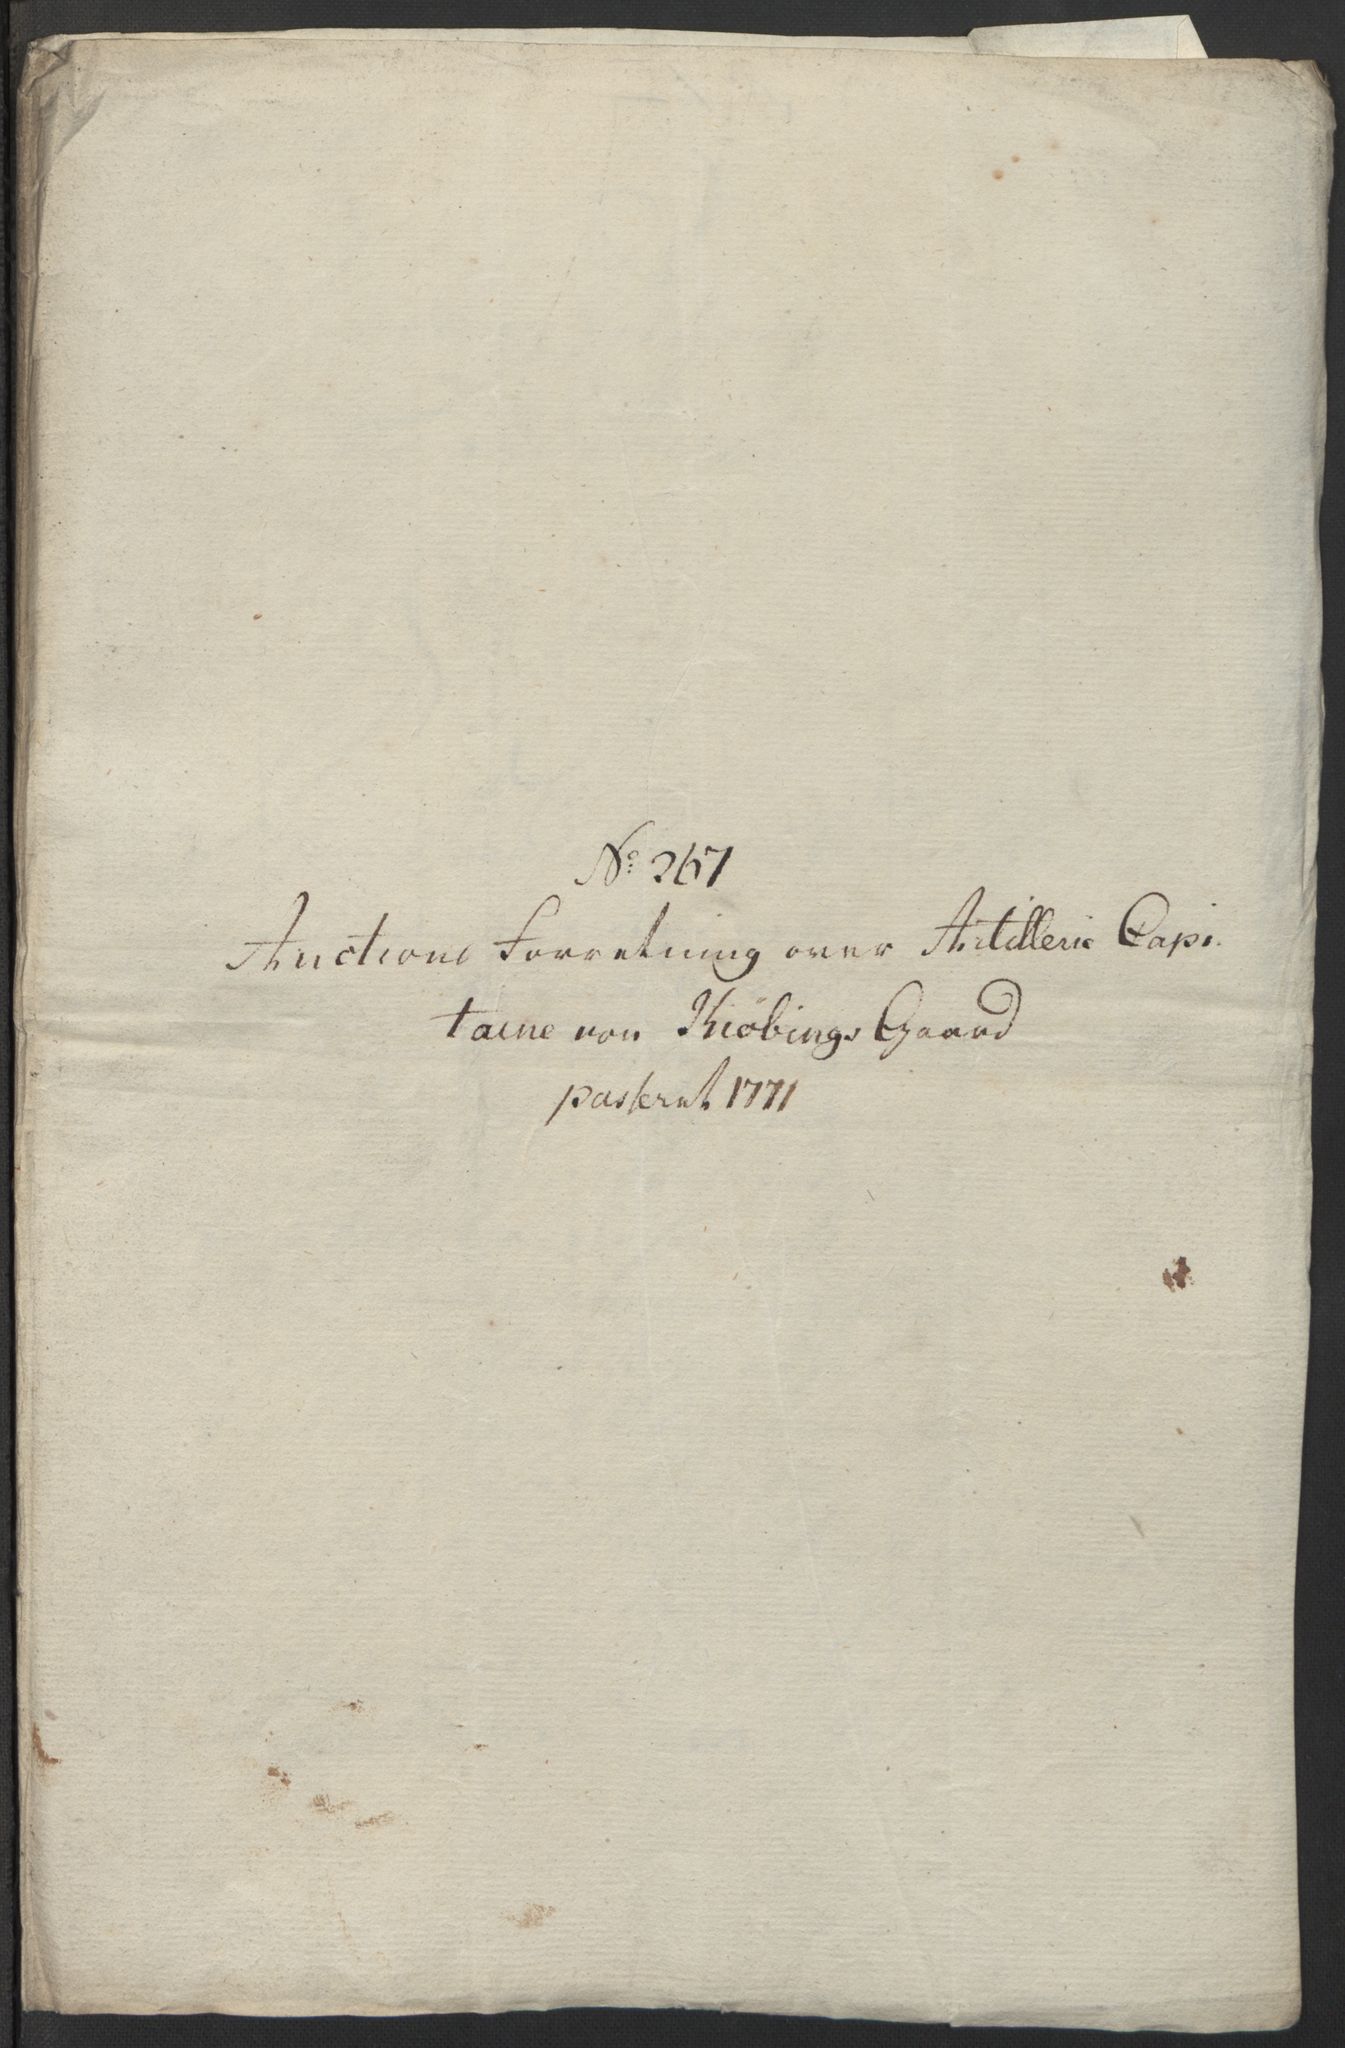 No 267
Auctions Forretning over Artillerie Capi-
taine von Kiöbings Gaard
passeret 1771